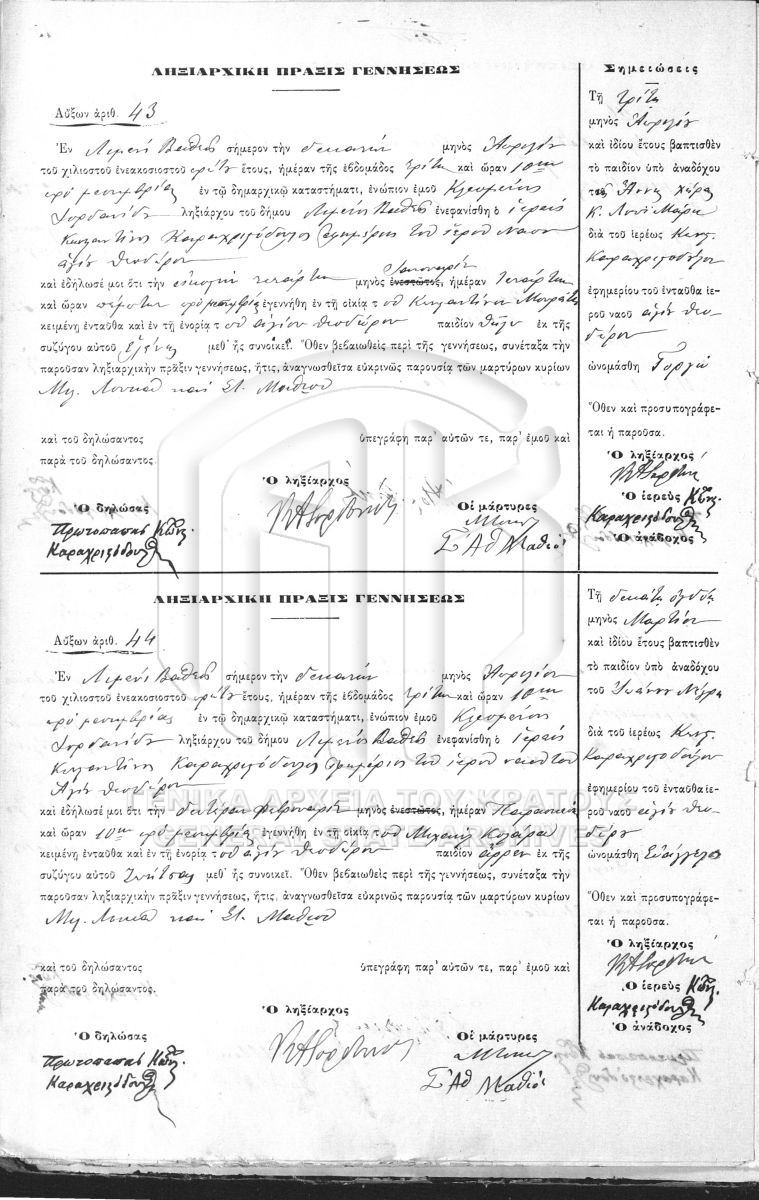 ΛΗΞΙΑΡΧΙΚΗ ΠΡΑΞΙΣ ΓΕΝΝΗΣΕΩΣ
Αὔξων ἀριθ. 43
Ἐν Λιμένι Βαθέος σήμερον τὴν δεκάτην μηνὸς Ἀπριλίου
τοῦ χιλιοστοῦ ἐνεακοσιοστοῦ πρώτου ἔτους, ἡμέραν τῆς ἑβδομάδος τρίτην καὶ ὥραν 10ην
πρὸ μεσημβρίας ἐν τῷ δημαρχικῷ καταστήματι, ἐνώπιον ἐμοῦ Κλεομένους
Ἰορδανίδου ληξιάρχου τοῦ δήμου Λιμένος Βαθέος ἐνεφανίσθη ὁ ἱερεὺς
Κωνσταντῖνος Καραχριστόδουλος ἐφημέριος τοῦ ἱεροῦ Ναοῦ
ἁγίου Θεοδώρου
καὶ ἐδήλωσέ μοι ὅτι τὴν εἰκοστὴν τετάρτην μηνὸς ἐνεστῶτος Ἰανουαρίου, ἡμέραν Τετάρτην
καὶ ὥραν πέμπτην πρὸ μεσημβρίας ἐγεννήθη ἐν τῇ οἰκίᾳ τοῦ Κωνσταντίνου
κειμένῃ ἐνταῦθα καὶ ἐν τῇ ἐνορίᾳ τοῦ ἁγίου Θεοδώρου παιδίον θῆλυ ἐκ τῆς
συζύγου αὐτοῦ Ἑλένης μεθ' ἧς συνοικεῖ. Ὅθεν βεβαιωθεὶς περὶ τῆς γεννήσεως, συνέταξα τὴν
παροῦσαν ληξιαρχικὴν πρᾶξιν γεννήσεως, ἥτις, ἀναγνωσθεῖσα εὐκρινῶς παρουσίᾳ τῶν μαρτύρων κυρίων
Μιχ. Λουκᾶ καὶ Στ. Μαθιοῦ
καὶ τοῦ δηλώσαντος ὑπεγράφη παρ' αὐτῶν τε, παρ' ἐμοῦ καὶ
παρὰ τοῦ δηλώσαντος.
Ὁ ληξίαρχος
Ὁ δηλώσας
Οἱ μάρτυρες
Πρωτοπαπᾶς Κων.
Καραχριστόδουλος
Σ Αθ Μαθιός
Σημειώσεις
Τῇ τρίτῃ
μηνὸς Ἀπριλίου
καὶ ἰδίου ἔτους βαπτισθὲν
τὸ παιδίον ὑπὸ ἀναδόχου
τῆς Ἄννης χήρας
Κ.
διὰ τοῦ ἱερέως Κωνστ.
Καραχριστοδούλου
ἐφημερίου τοῦ ἐνταῦθα ἱε-
ροῦ ναοῦ ἁγίου Θεο-
δώρου
ὠνομάσθη
Ὅθεν καὶ προσυπογράφε-
ται ἡ παροῦσα.
Ὁ ληξίαρχος
Ὁ ἱερεὺς Κων.
Καραχριστόδουλος
Ὁ ἀνάδοχος
ΛΗΞΙΑΡΧΙΚΗ ΠΡΑΞΙΣ ΓΕΝΝΗΣΕΩΣ
Αὔξων ἀριθ. 44
Ἐν Λιμένι Βαθέος σήμερον τὴν δεκάτην μηνὸς Ἀπριλίου
τοῦ χιλιοστοῦ ἐνεακοσιοστοῦ πρώτου ἔτους, ἡμέραν τῆς ἑβδομάδος τρίτην καὶ ὥραν 10ην
πρὸ μεσημβρίας ἐν τῷ δημαρχικῷ καταστήματι, ἐνώπιον ἐμοῦ Κλεομένους
Ἰορδανίδου ληξιάρχου τοῦ δήμου Λιμένος Βαθέος ἐνεφανίσθη ὁ ἱερεὺς
Κωνσταντῖνος Καραχριστόδουλος ἐφημέριος τοῦ ἱεροῦ ναοῦ τοῦ
Ἁγίου Θεοδώρου
καὶ ἐδήλωσέ μοι ὅτι τὴν δευτέραν Φεβρουαρίου μηνὸς ἐνεστῶτος, ἡμέραν Παρασκευὴν
καὶ ὥραν 10ην πρὸ μεσημβρίας ἐγεννήθη ἐν τῇ οἰκίᾳ τοῦ Μιχαὴλ
κειμένῃ ἐνταῦθα καὶ ἐν τῇ ἐνορίᾳ τοῦ ἁγίου Θεοδώρου παιδίον ἄρρεν ἐκ τῆς
συζύγου αὐτοῦ μεθ' ἧς συνοικεῖ. Ὅθεν βεβαιωθεὶς περὶ τῆς γεννήσεως, συνέταξα τὴν
παροῦσαν ληξιαρχικὴν πρᾶξιν γεννήσεως, ἥτις, ἀναγνωσθεῖσα εὐκρινῶς παρουσίᾳ τῶν μαρτύρων κυρίων
Μιχ. Λουκᾶ καὶ Στ. Μαθιοῦ
καὶ τοῦ δηλώσαντος ὑπεγράφη παρ' αὐτῶν τε, παρ' ἐμοῦ καὶ
παρὰ τοῦ δηλώσαντος.
Ὁ ληξίαρχος
Ὁ δηλώσας
Οἱ μάρτυρες
Πρωτοπαπᾶς Κων.
Καραχριστόδουλος
Σ Αθ Μαθιός
Τῇ δεκάτῃ ὀγδόῃ
μηνὸς Μαρτίου
καὶ ἰδίου ἔτους βαπτισθὲν
τὸ παιδίον ὑπὸ ἀναδόχου
τοῦ Ἰωάννου
διὰ τοῦ ἱερέως Κωνστ.
Καραχριστοδούλου
ἐφημερίου τοῦ ἐνταῦθα ἱε-
ροῦ ναοῦ ἁγίου Θεο-
δώρου
ὠνομάσθη Εὐάγγελος
Ὅθεν καὶ προσυπογράφε-
ται ἡ παροῦσα.
Ὁ ληξίαρχος
Ὁ ἱερεὺς Κων.
Καραχριστόδουλος
Ὁ ἀνάδοχος
ΓΕΝΙΚΑ ΑΡΧΕΙΑ ΤΟΥ ΚΡΑΤΟΥΣ
GENERAL STATE ARCHIVES